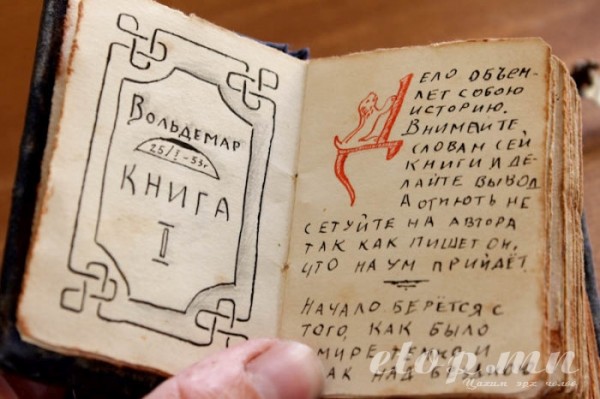 ВОЛЬДЕМАР
25/I-53г
КНИГА
I
ДЕЛО ОБЪЕМ-
ЛЕТ СОБОЮ
ИСТОРИЮ.
ВНИМАЙТЕ
СЛОВАМ СЕЙ
КНИГИ И ДЕ-
ЛАЙТЕ ВЫВОД
А ОТНЮТЬ НЕ
СЕТУЙТЕ НА АВТОРА
ТАК КАК ПИШЕТ ОН,
ЧТО НА УМ ПРИЙДЁТ.
НАЧАЛО БЕРЁТСЯ С
ТОГО, КАК БЫЛО
МИРЕ И
КАК НАД
etop.mn
Цахим